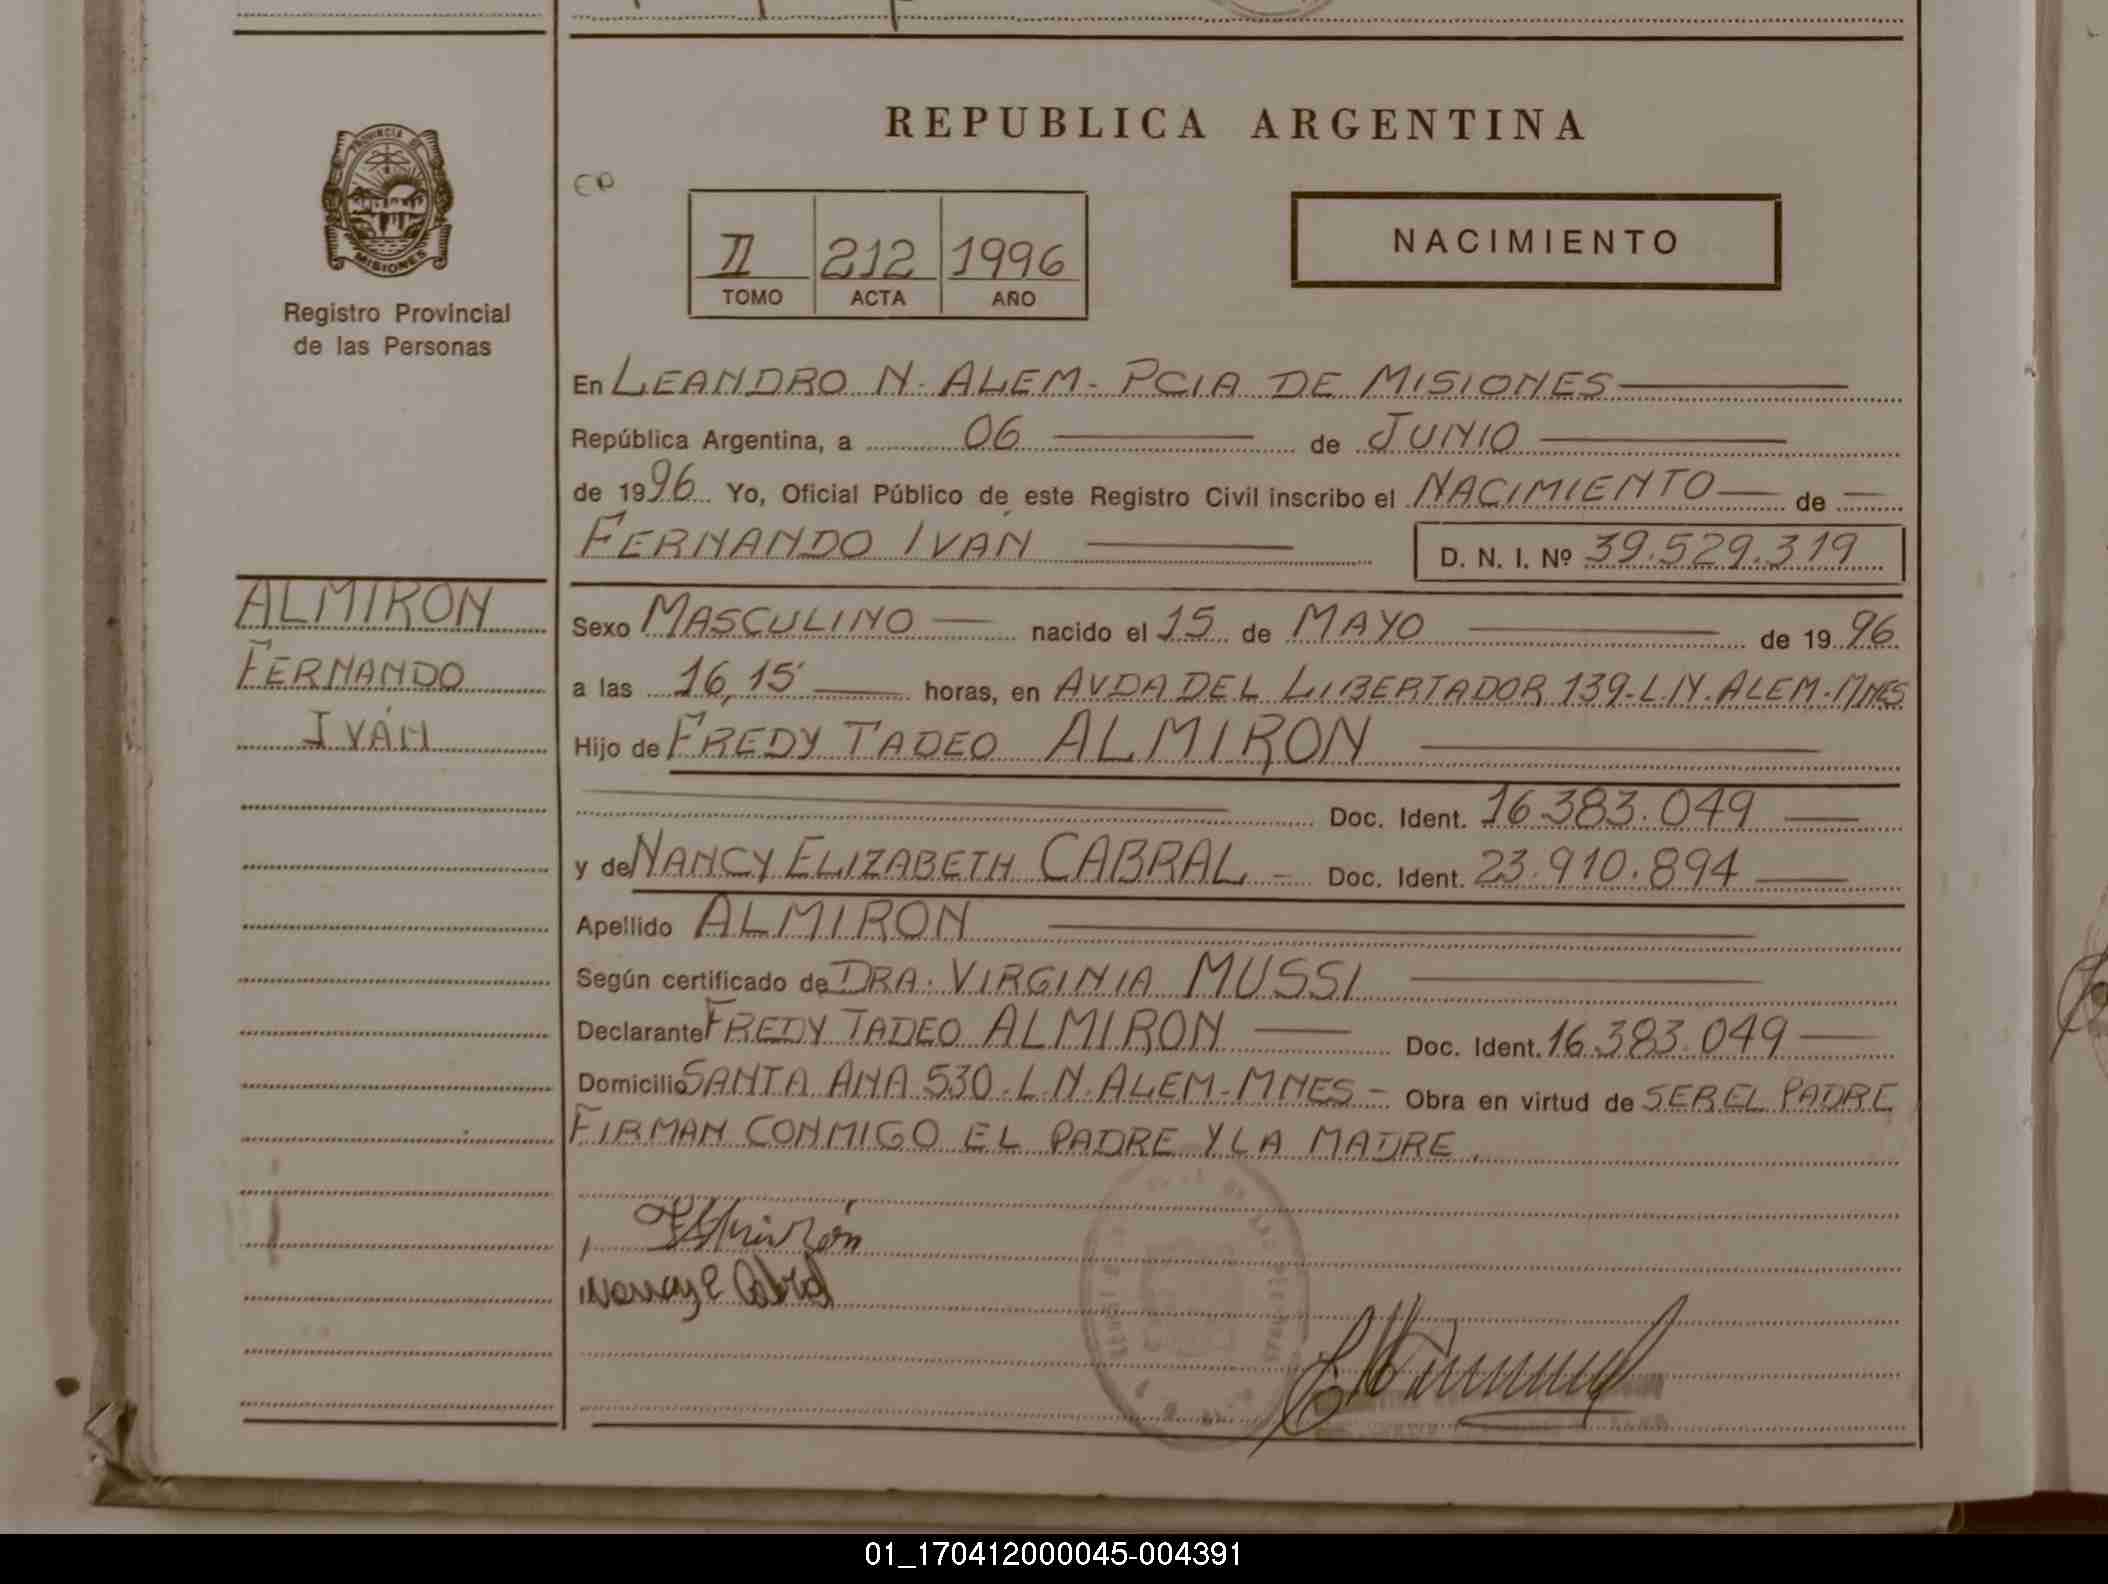 REPUBLICA ARGENTINA
PROVINCIA DE
MISIONES
Registro Provincial
de las Personas
II 212 1996
TOMO ACTA AÑO
NACIMIENTO
En LEANDRO N. ALEM - PCIA DE MISIONES
República Argentina, a 06 de JUNIO
de 1996 Yo, Oficial Público de este Registro Civil inscribo el NACIMIENTO de
FERNANDO IVÁN D. N. I. Nº 39.529.319
ALMIRON
FERNANDO
IVÁN
Sexo MASCULINO nacido el 15 de MAYO de 19 96
a las 16,15 horas, en AVDA DEL LIBERTADOR 139-L.N. ALEM-MNES
Hijo de FREDY TADEO ALMIRON
Doc. Ident. 16.383.049
y de NANCY ELIZABETH CABRAL - Doc. Ident. 23.910.894
Apellido ALMIRON
Según certificado de DRA. VIRGINIA MUSSI
Declarante FREDY TADEO ALMIRON Doc. Ident. 16.383.049
Domicilio SANTA ANA 530-L.N. ALEM-MNES - Obra en virtud de SER EL PADRE
FIRMAN CONMIGO EL PADRE Y LA MADRE.
Nancy E Cabral
01_170412000045-004391